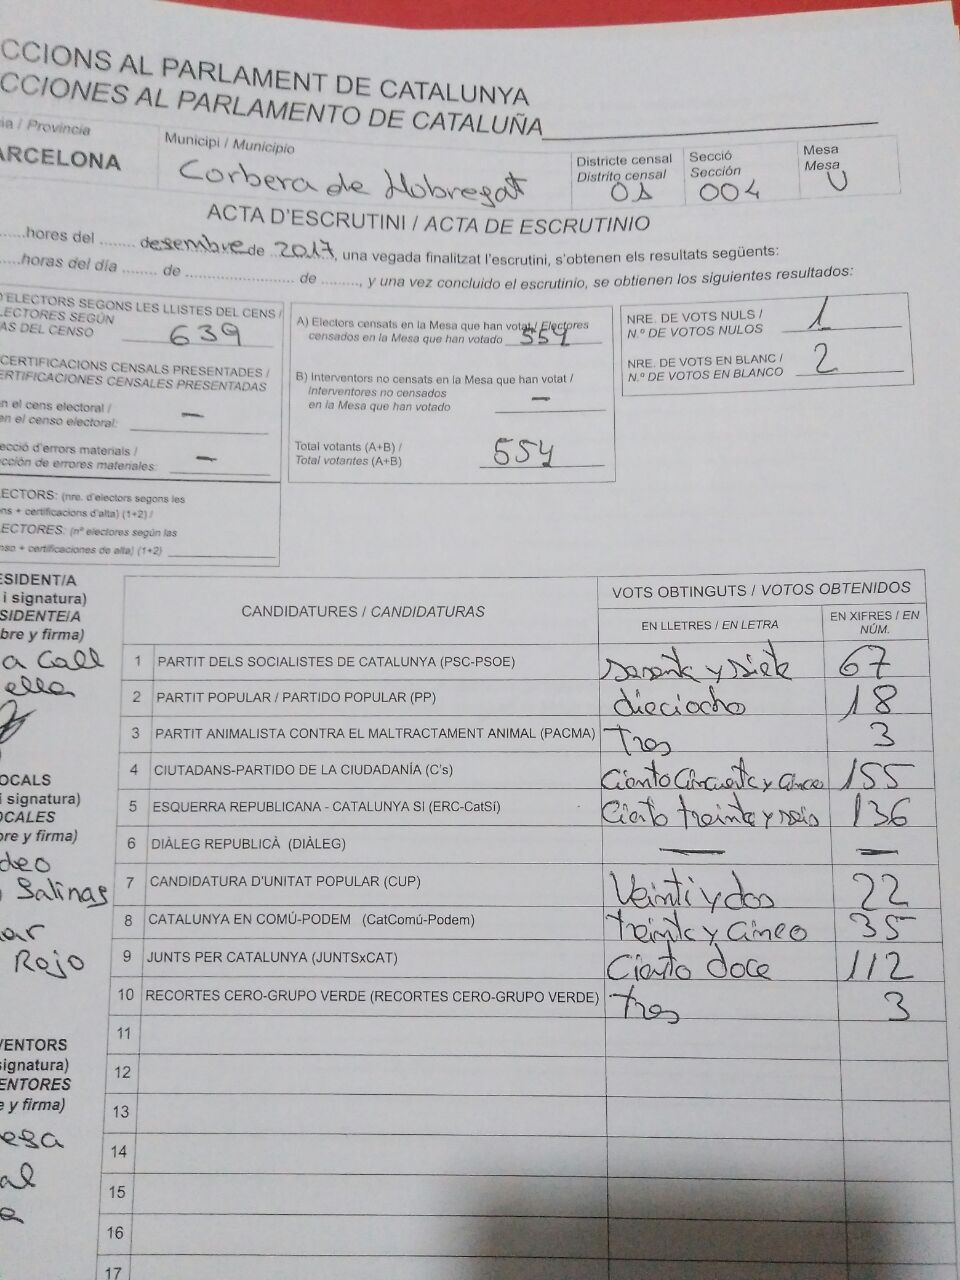 CCIONS AL PARLAMENT DE CATALUNYA
CCIONES AL PARLAMENTO DE CATALUÑA
ia / Provincia
ARCELONA
Municipi / Municipio
Corbera de Llobregat
Districte censal
Distrito censal
01
Secció
Sección
004
Mesa
Mesa
U
ACTA D'ESCRUTINI / ACTA DE ESCRUTINIO
......hores del ........ desembre de 2017, una vegada finalitzat l'escrutini, s'obtenen els resultats següents:
......horas del día ........ de ........................ de ........, y una vez concluido el escrutinio, se obtienen los siguientes resultados:
D'ELECTORS SEGONS LES LLISTES DEL CENS /
LECTORES SEGÚN
AS DEL CENSO 639
CERTIFICACIONS CENSALS PRESENTADES /
ERTIFICACIONES CENSALES PRESENTADAS
en el cens electoral /
en el censo electoral: —
ecció d'errors materials /
cción de errores materiales: —
ECTORS: (nre. d'electors segons les
ens + certificacions d'alta) (1+2) /
ECTORES: (nº electores según las
nso + certificaciones de alta) (1+2)
A) Electors censats en la Mesa que han votat / Electores
censados en la Mesa que han votado 554
B) Interventors no censats en la Mesa que han votat /
Interventores no censados
en la Mesa que han votado —
Total votants (A+B) /
Total votantes (A+B) 554
NRE. DE VOTS NULS /
N.º DE VOTOS NULOS 1
NRE. DE VOTS EN BLANC /
N.º DE VOTOS EN BLANCO 2
ESIDENT/A
i signatura)
SIDENTE/A
bre y firma)
a Call
ella
OCALS
i signatura)
OCALES
bre y firma)
deo
Salinas
ar
Rojo
VENTORS
signatura)
ENTORES
e y firma)
esa
al
a
CANDIDATURES / CANDIDATURAS
VOTS OBTINGUTS / VOTOS OBTENIDOS
EN LLETRES / EN LETRA
EN XIFRES / EN NÚM.
1 PARTIT DELS SOCIALISTES DE CATALUNYA (PSC-PSOE) sesenta y siete 67
2 PARTIT POPULAR / PARTIDO POPULAR (PP) dieciocho 18
3 PARTIT ANIMALISTA CONTRA EL MALTRACTAMENT ANIMAL (PACMA) Tres 3
4 CIUTADANS-PARTIDO DE LA CIUDADANÍA (C's) Ciento Cincuenta y cinco 155
5 ESQUERRA REPUBLICANA - CATALUNYA SI (ERC-CatSí) Ciento treinta y seis 136
6 DIÀLEG REPUBLICÀ (DIÀLEG) — —
7 CANDIDATURA D'UNITAT POPULAR (CUP) Veinti y dos 22
8 CATALUNYA EN COMÚ-PODEM (CatComú-Podem) treinta y cinco 35
9 JUNTS PER CATALUNYA (JUNTSxCAT) Ciento doce 112
10 RECORTES CERO-GRUPO VERDE (RECORTES CERO-GRUPO VERDE) Tres 3
11
12
13
14
15
16
17